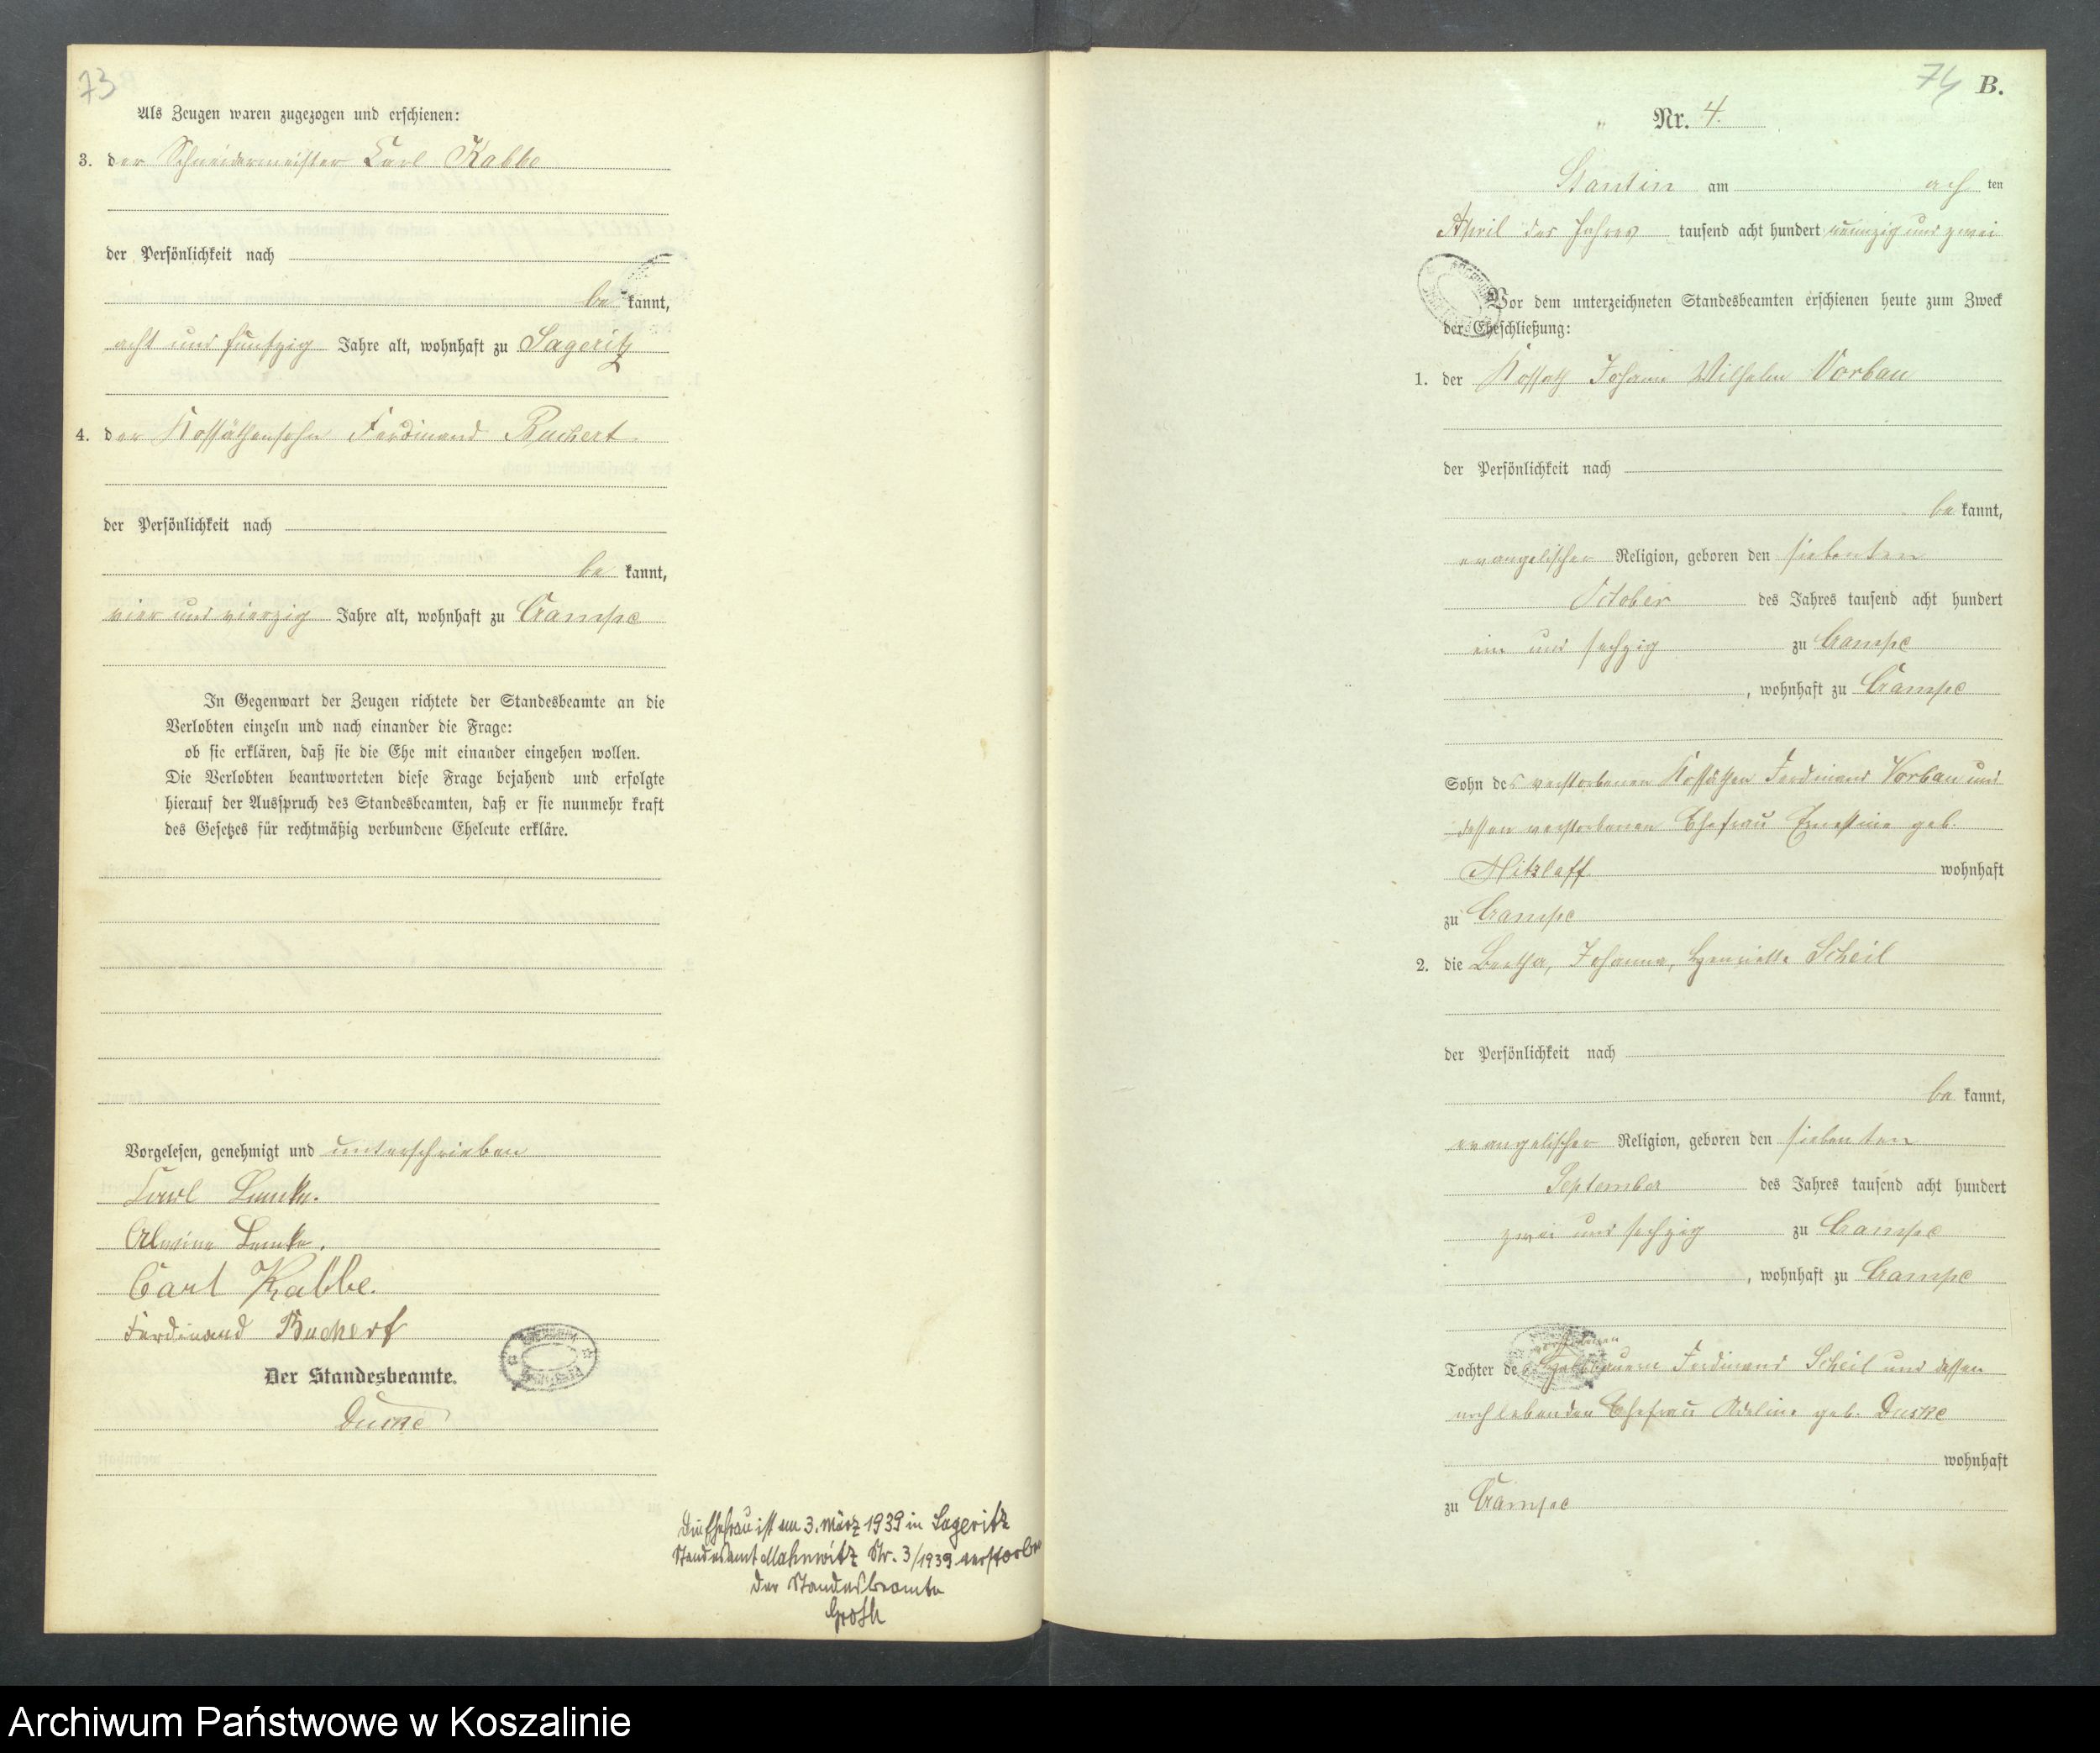 73
Als Zeugen waren zugezogen und erschienen:
3. der Schneidermeister Carl Kabbe
der Persönlichkeit nach
be kannt,
acht und fünfzig Jahre alt, wohnhaft zu Sageritz
4. der Kossäthensohn Ferdinand Buchert.
der Persönlichkeit nach
be kannt,
vier und vierzig Jahre alt, wohnhaft zu Crampe
In Gegenwart der Zeugen richtete der Standesbeamte an die
Verlobten einzeln und nach einander die Frage:
ob sie erklären, daß sie die Ehe mit einander eingehen wollen.
Die Verlobten beantworteten diese Frage bejahend und erfolgte
hierauf der Ausspruch des Standesbeamten, daß er sie nunmehr kraft
des Gesetzes für rechtmäßig verbundene Eheleute erkläre.
Vorgelesen, genehmigt und unterschrieben
Carl Lemke.
Alwine Lemke.
Carl Kabbe.
Ferdinand Buchert
Der Standesbeamte.
Duske
Die Ehefrau ist am 3. März 1939 in Sageritz
Standesamt Mahnwitz Nr. 3/1939 verstorben
Der Standesbeamte
Groth
74 B.
Nr. 4.
Stantin am ach ten
April des Jahres tausend acht hundert neunzig und zwei
Vor dem unterzeichneten Standesbeamten erschienen heute zum Zweck
der Eheschließung:
1. der Kossath Johann Wilhelm Vorbau
der Persönlichkeit nach
be kannt,
evangelischer Religion, geboren den siebenten
October des Jahres tausend acht hundert
ein und sechzig zu Crampe
, wohnhaft zu Crampe
Sohn des verstorbenen Kossäthen Ferdinand Vorbau und
dessen verstorbenen Ehefrau Ernestine geb.
Mitzlaff wohnhaft
zu Crampe
2. die Bertha, Johanna, Henriette Scheil
der Persönlichkeit nach
be kannt,
evangelischer Religion, geboren den siebenten
September des Jahres tausend acht hundert
zwei und sechzig zu Crampe
, wohnhaft zu Crampe
Tochter des verstorbenen Halbbauern Ferdinand Scheil und dessen
noch lebenden Ehefrau Adeline geb. Duske
wohnhaft
zu Crampe
Archiwum Państwowe w Koszalinie